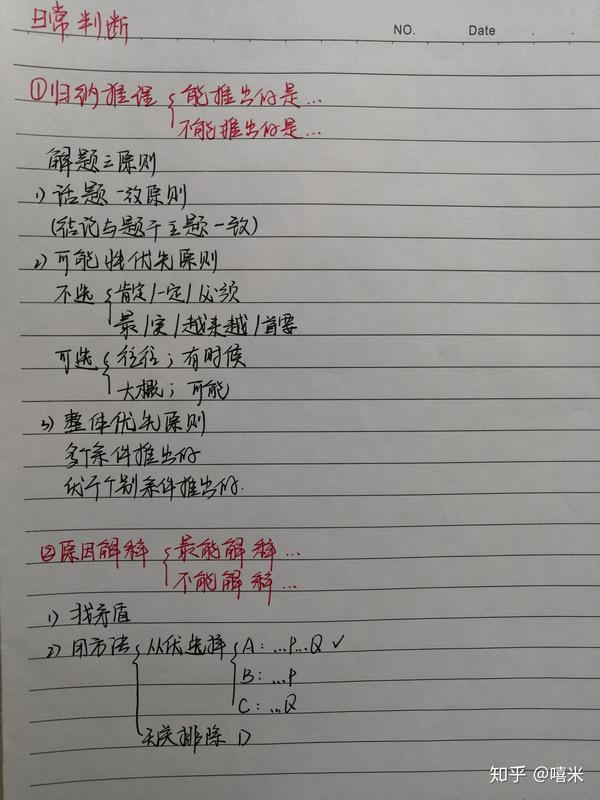 日常判断
NO.
Date
①归纳推理 { 能推出的是…
不能推出的是…
解题三原则
1) 话题一致原则
(结论与题干主题一致)
2) 可能性优先原则
不选 { 肯定/一定/必须
最/更/越来越/首要
可选 { 往往；有时候
大概；可能
3) 整体优先原则
多个条件推出的
优于个别条件推出的.
②原因解释 { 最能解释…
不能解释…
1) 找矛盾
2) 用方法 { 从优选择 { A：…P…Q ✓
B：…P
C：…Q
无关排除 D
知乎 @嘻米